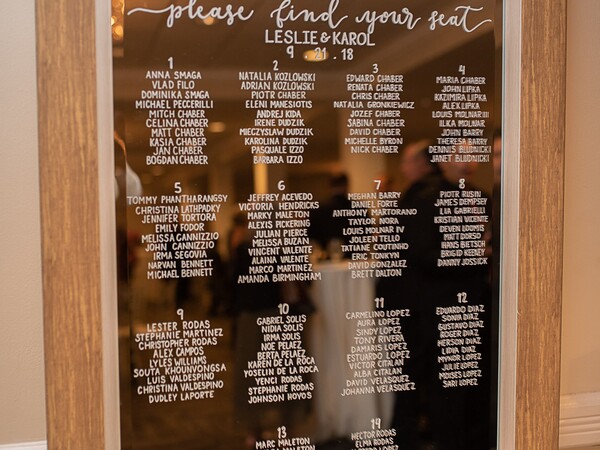 please find your seat
LESLIE & KAROL
9 . 21 . 18
1
ANNA SMAGA
VLAD FILO
DOMINIKA SMAGA
MICHAEL PECCERILLI
MITCH CHABER
CELINA CHABER
MATT CHABER
KASIA CHABER
JAN CHABER
BOGDAN CHABER
2
NATALIA KOZLOWSKI
ADRIAN KOZLOWSKI
PIOTR CHABER
ELENI MANESIOTIS
ANDREJ KIDA
IRENE DUDZIK
MIECZYSLAW DUDZIK
KAROLINA DUDZIK
PASQUALE IZZO
BARBARA IZZO
3
EDWARD CHABER
RENATA CHABER
CHRIS CHABER
NATALIA GRONKIEWICZ
JOZEF CHABER
SABINA CHABER
DAVID CHABER
MICHELLE BYRON
NICK CHABER
4
MARIA CHABER
JOHN LIPKA
KAZIMIRA LIPKA
ALEX LIPKA
LOUIS MOLNAR III
ILKA MOLNAR
JOHN BARRY
THERESA BARRY
DENNIS BLUDNICKI
JANET BLUDNICKI
5
TOMMY PHANTHARANGSY
CHRISTINA LATHPADKY
JENNIFER TORTORA
EMILY FODOR
MELISSA CANNIZZIO
JOHN CANNIZZIO
IRMA SEGOVIA
NARVAN BENNETT
MICHAEL BENNETT
6
JEFFREY ACEVEDO
VICTORIA HENDRICKS
MARKY MALETON
ALEXIS PICKERING
JULIAN PIERCE
MELISSA BUZAN
VINCENT VALENTE
ALAINA VALENTE
MARCO MARTINEZ
AMANDA BIRMINGHAM
7
MEGHAN BARRY
DANIEL FORTE
ANTHONY MARTORANO
TAYLOR NORA
LOUIS MOLNAR IV
JOLEEN TELLO
TATIANE COUTINHO
ERIC TONKYN
DAVID GONZALEZ
BRETT DALTON
8
PIOTR RUSIN
JAMES DEMPSEY
LIA GABRIELLI
KRISTIAN VICENTE
DEVEN LOOMIS
MATT DORSO
HANS BIETSCH
BRIGID KEENEY
DANNY JOSSICK
9
LESTER RODAS
STEPHANIE MARTINEZ
CHRISTOPHER RODAS
ALEX CAMPOS
LYLES WILLIAMS
SOUTA KHOUNVONGSA
LUIS VALDESPINO
CHRISTINA VALDESPINO
DUDLEY LAPORTE
10
GABRIEL SOLIS
NIDIA SOLIS
IRMA SOLIS
NOE PELAEZ
BERTA PELAEZ
KAREN DE LA ROCA
YOSELIN DE LA ROCA
YENCI RODAS
STEPHANIE RODAS
JOHNSON HOYOS
11
CARMELINO LOPEZ
AURA LOPEZ
SINDY LOPEZ
TONY RIVERA
DAMARIS LOPEZ
ESTUARDO LOPEZ
VICTOR CITALAN
ALBA CITALAN
DAVID VELASQUEZ
JOHANNA VELASQUEZ
12
EDUARDO DIAZ
SONIA DIAZ
GUSTAVO DIAZ
ROGER DIAZ
HERSON DIAZ
LIDIA DIAZ
MYNOR LOPEZ
JULIE LOPEZ
MOISES LOPEZ
SARI LOPEZ
13
MARC MALETON
14
HECTOR RODAS
ELMA RODAS